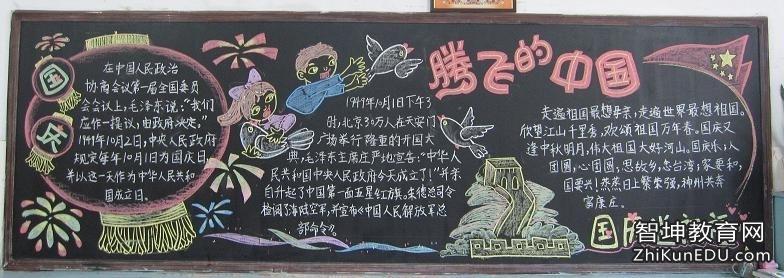 国
庆
在中国人民政治
协商会议第一届全国委员
会会议上,毛泽东说:"我们
应作一提议,由政府决定。"
1949年10月2日,中央人民政府
规定每年10月1日为国庆日,
并以这一天作为中华人民共和
国成立日。
1949年10月1日下午3
时,北京30万人在天安门
广场举行隆重的开国大
典,毛泽东主席庄严地宣告:"中华人
民共和国中央人民政府今天成立了!"并亲
自升起了中国第一面五星红旗。朱德总司令
检阅了海陆空军,并宣布《中国人民解放军总
部命令》。
腾飞的中国
走遍祖国最想母亲,走遍世界最想祖国。
欣望江山千里秀,欢颂祖国万年春。国庆又
逢中秋明月,伟大祖国大好河山。国庆乐;入
团圆,心团圆,思故乡,念台湾;家要和,
国要兴!蒸蒸日上繁荣强,神州共奔
富康庄。
国庆
智坤教育网
ZhiKunEDU.com